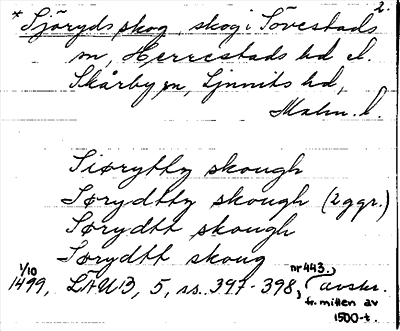 2.
* Sjöryds skog, skog i Sövestads
sn, Herrestads hd el.
Skårby sn, Ljunits hd,
Malm. l.
Siørytty skough
Sørydtty skough (2 ggr.)
Sørydtt skough
Sørydtt skoug
1/10 1499, LÄUB, 5, ss. 397-398, nr 443., avskr.
fr. mitten av
1500-t.